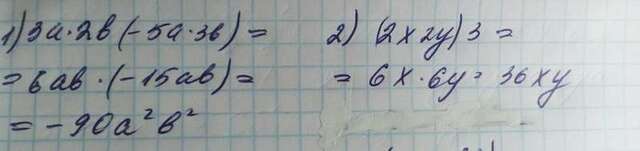 1) 3a·2b(-5a·3b) =
= 6ab·(-15ab) =
= -90a²b²
2) (2x2y)3 =
= 6x·6y = 36xy